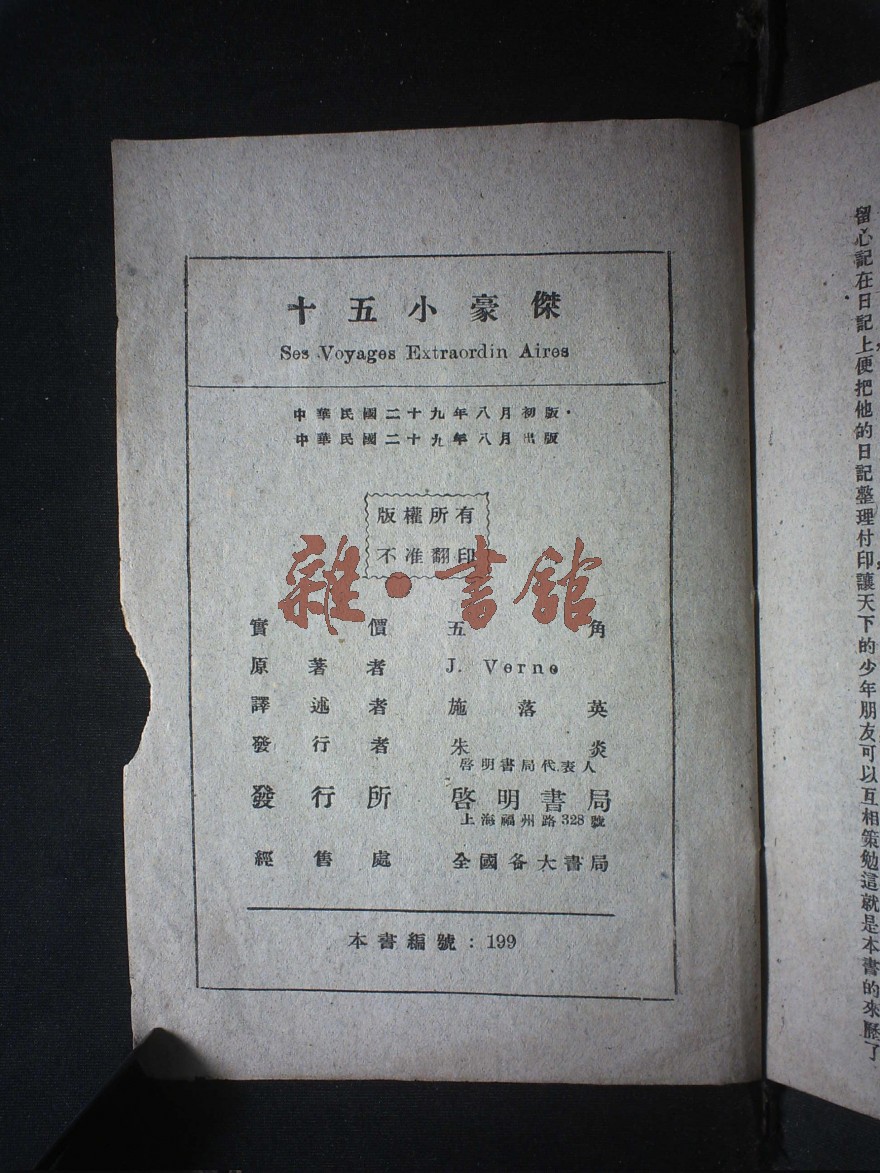 十五小豪傑
Ses Voyages Extraordin Aires
中華民國二十九年八月初版
中華民國二十九年八月出版
版權所有
不准翻印
雜·書館
實價 五角
原著者 J. Verne
譯述者 施落英
發行者 朱炎
啓明書局代表人
發行所 啓明書局
上海福州路328號
經售處 全國各大書局
本書編號：199
留心記在日記上便把他的日記整理付印讓天下的少年朋友可以互相策勉這就是本書的來歷了